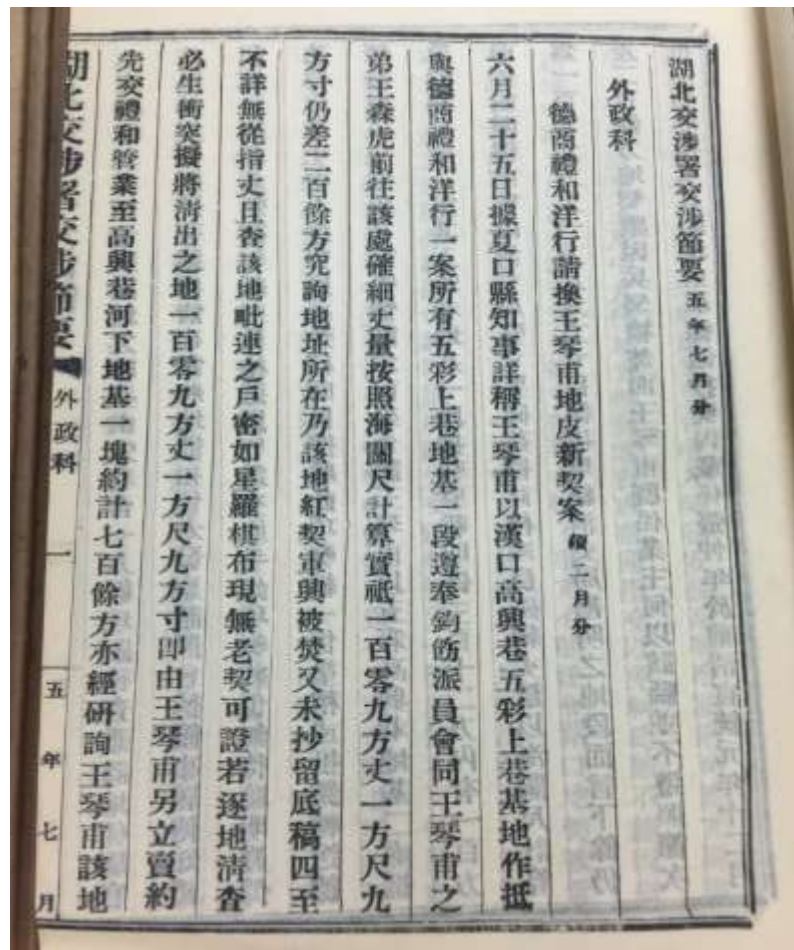 湖北交涉署交涉節要 五年七月分
外政科
德商禮和洋行請換王琴甫地皮新契案 續二月分
六月二十五日據夏口縣知事詳稱王琴甫以漢口高興巷五彩上巷基地作抵
與德商禮和洋行一案所有五彩上巷地基一段遵奉鈞飭派員會同王琴甫之
弟王森虎前往該處確細丈量按照海關尺計算實祗一百零九方丈一方尺九
方寸仍差二百餘方究詢地址所在乃該地紅契軍興被焚又未抄留底稿四至
不詳無從指丈且查該地毗連之戶密如星羅棋布現無老契可證若逐地清查
必生衝突擬將清出之地一百零九方丈一方尺九方寸即由王琴甫另立賣約
先交禮和管業至高興巷河下地基一塊約計七百餘方亦經研詢王琴甫該地
湖北交涉署交涉節要 外政科 一 五年七月